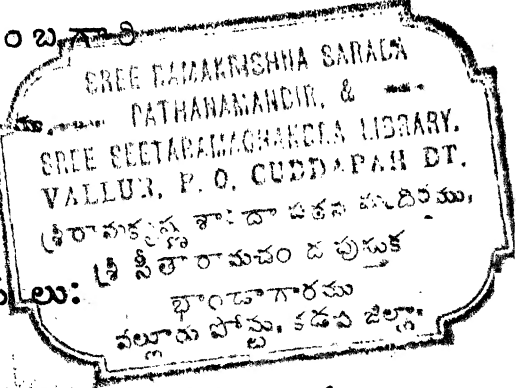 ం బగారి
SREE RAMAKRISHNA SARADA
PATHANAMANDIR, &
SREE SEETARAMACHANDRA LIBRARY.
VALLUR, P. O. CUDDAPAH DT.
శ్రీరామకృష్ణ శారదా పఠన మందిరము,
శ్రీ సీతారామచంద్ర పుస్తక
లు:
భాండాగారము
వల్లూరు పోస్టు, కడప జిల్లా.